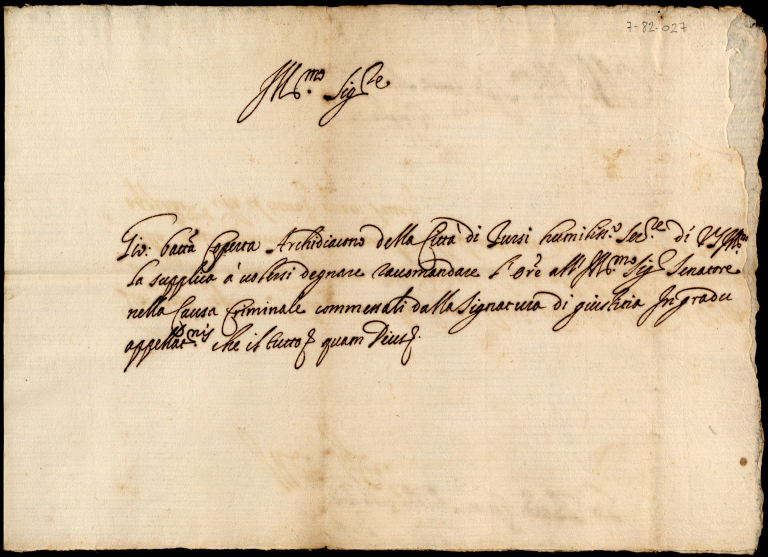 7-82-027
Ill.mo Sig.re
Gio: batt.a Coperta Archidiacono della Città di Tursi humiliss.o Ser.re di VS Ill.ma
la supplica à volersi degnare raccomandare l' Ore all' Ill.mo Sig.r Senatore
nella Causa Criminale commessali dalla Signatura di giustitia In gradu
appellat.nis che il tutto quam Deus